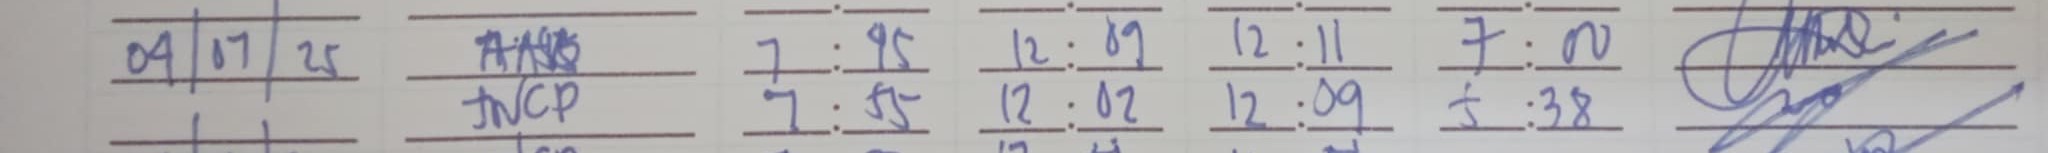 04/07/25 7:45 12:09 12:11 7:00
JNCP 7:55 12:02 12:09 5:38